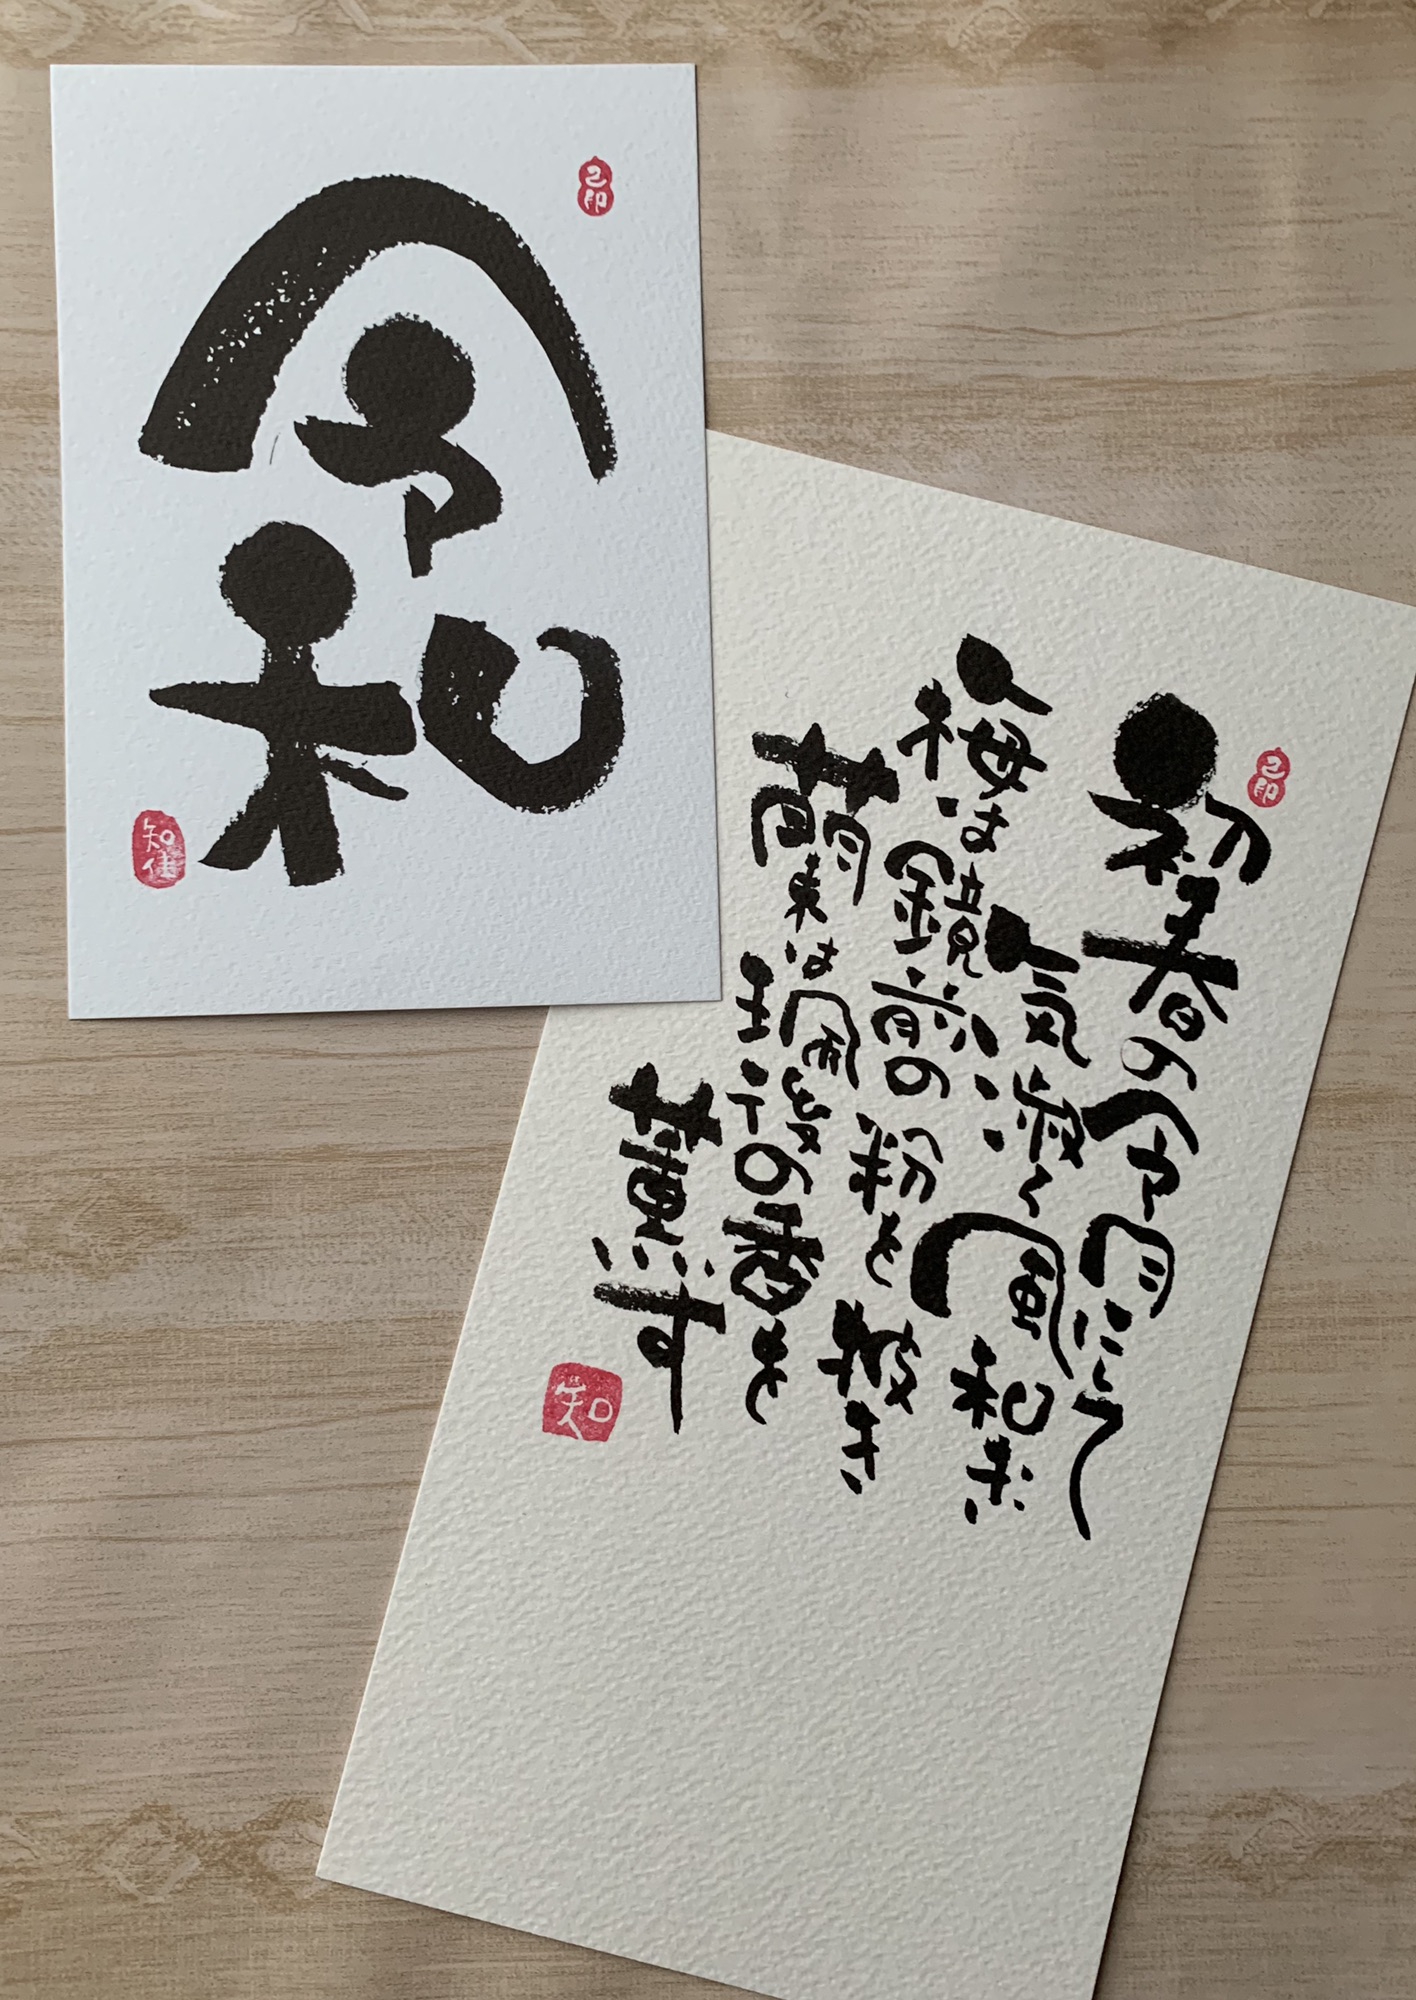 令和
初春の令月にして
気淑く風和ぎ
梅は鏡前の粉を披き
蘭は珮後の香を
薫す
知